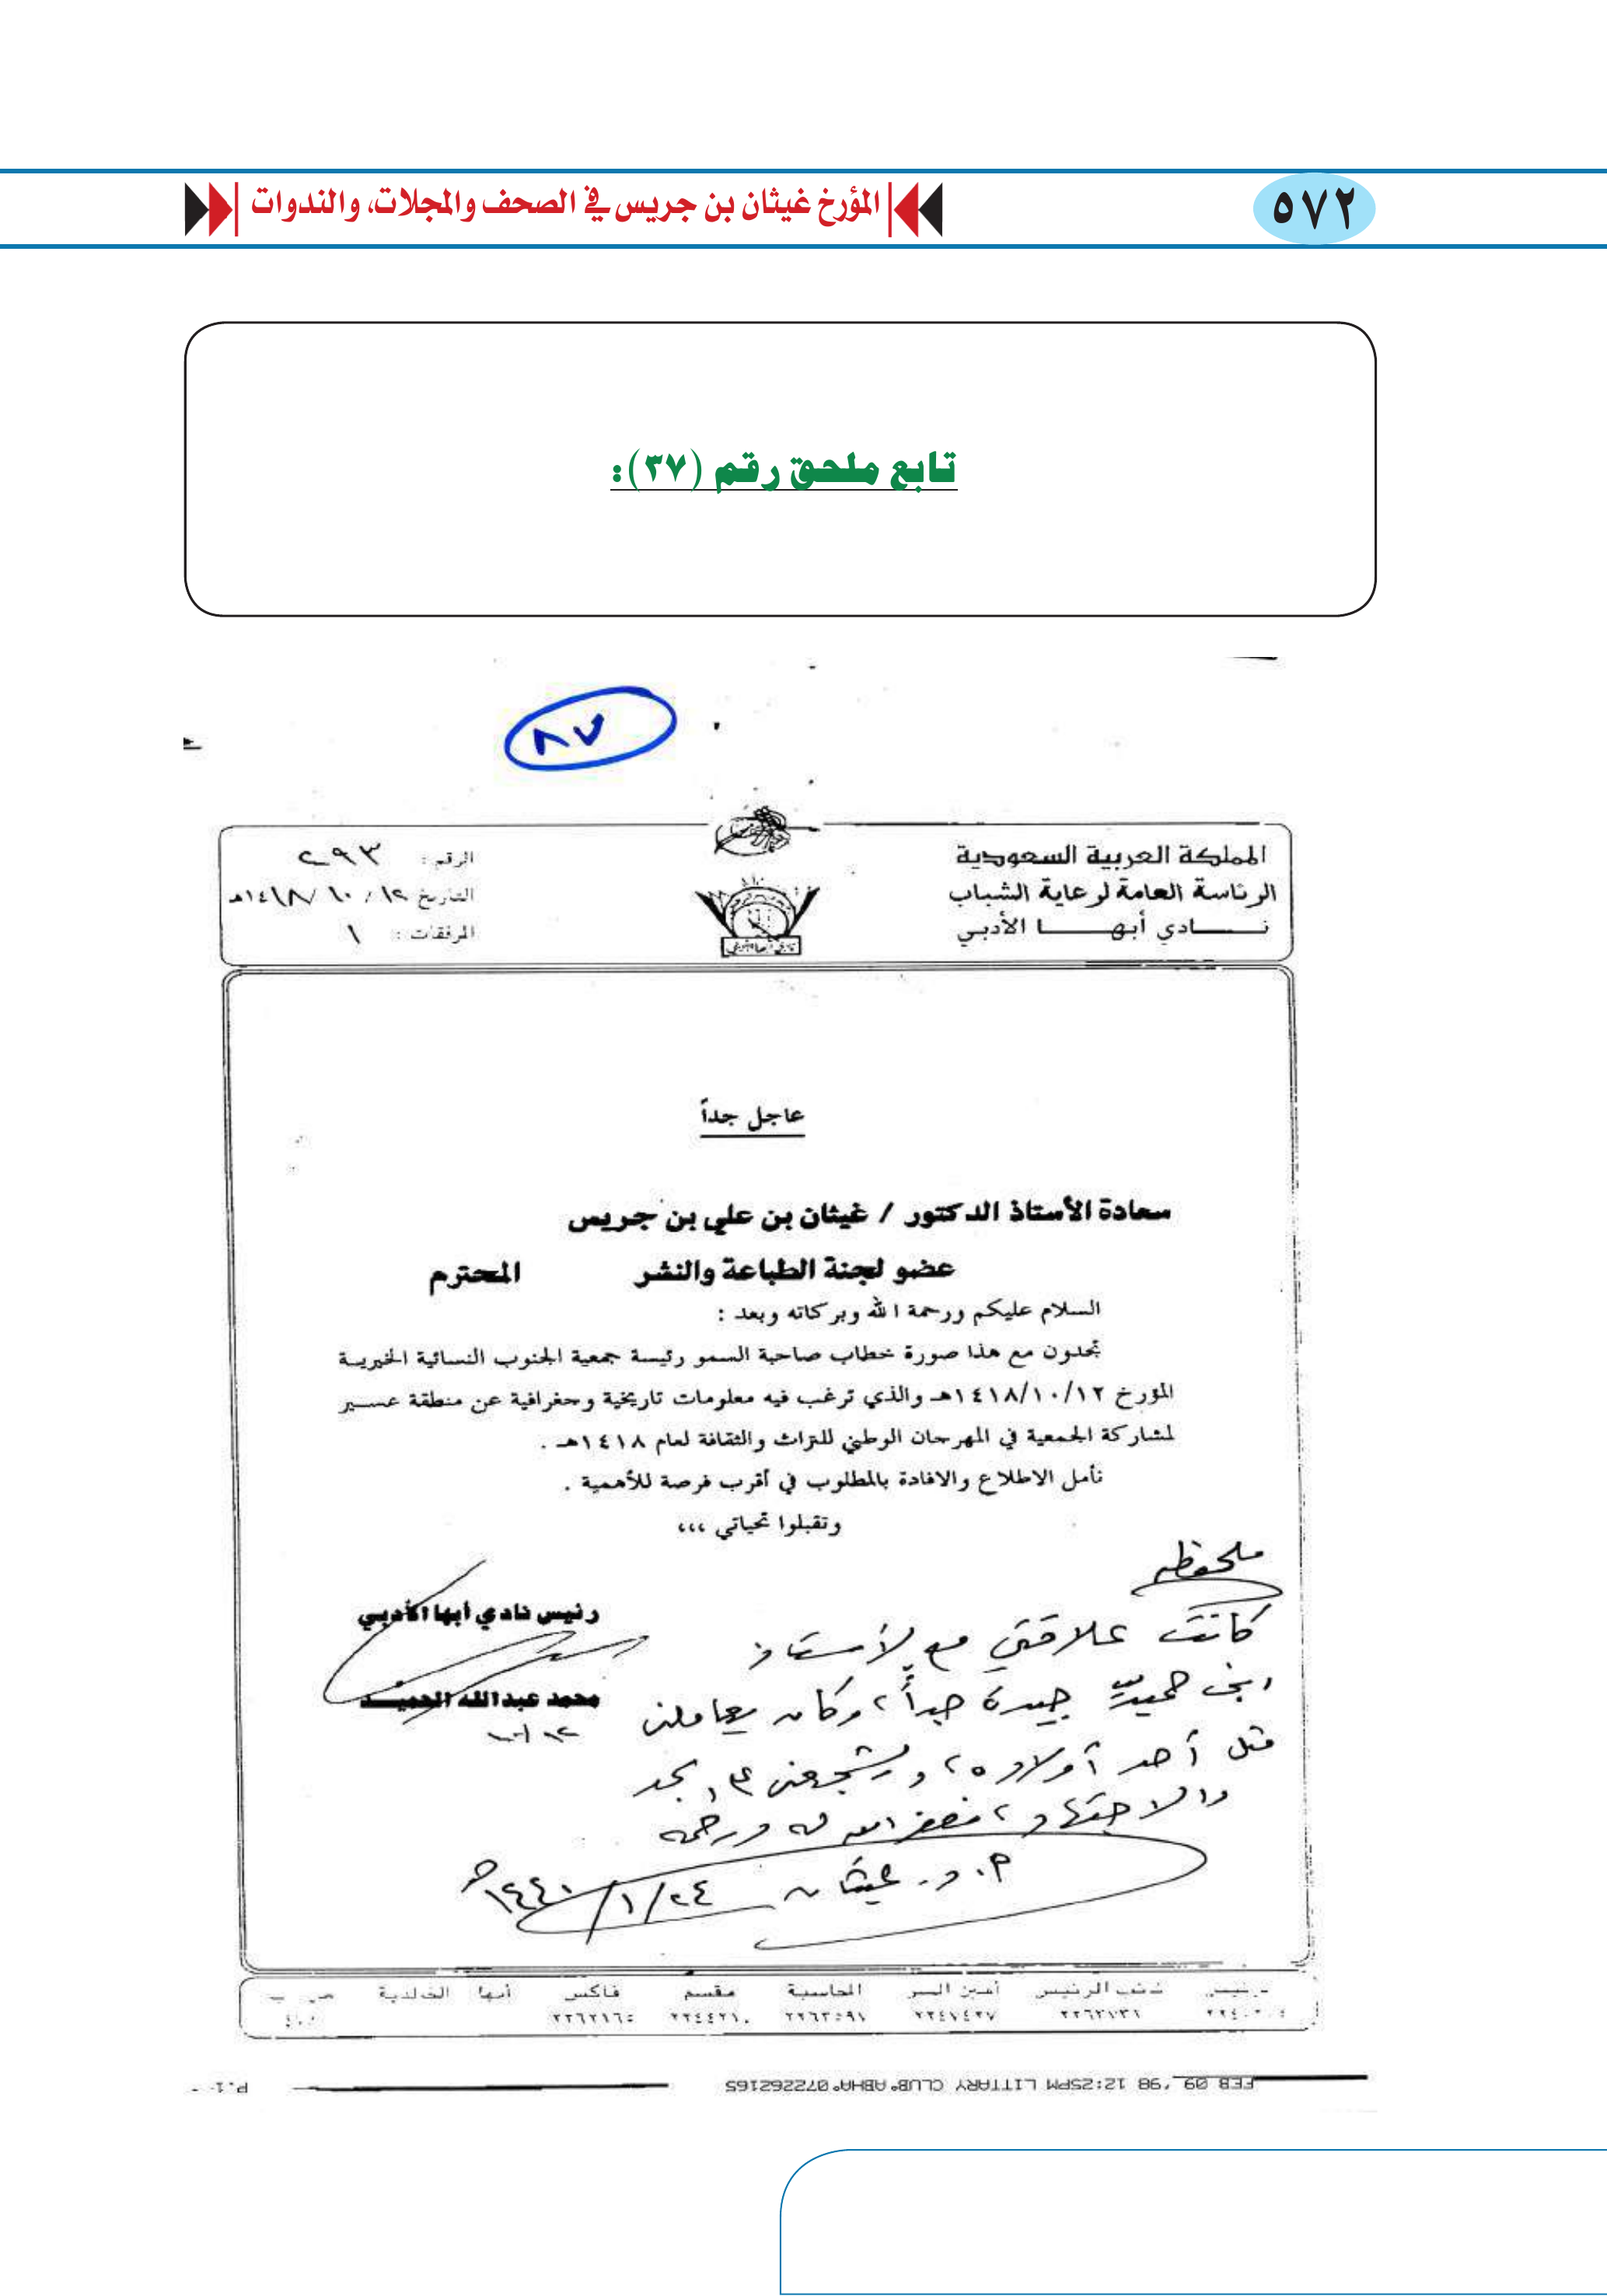 ٥٧٢
المؤرخ غيثان بن جريس في الصحف والمجلات، والندوات
تابع ملحق رقم (٣٧):
٨٧
المملكة العربية السعودية
الرئاسة العامة لرعاية الشباب
نـــادي أبهـــا الأدبي
الرقم: ٢٩٣
التاريخ ١٢ / ١٠ / ١٤١٨هـ
المرفقات: ١
عاجل جداً
سعادة الأستاذ الدكتور / غيثان بن علي بن جريس
عضو لجنة الطباعة والنشر المحترم
السلام عليكم ورحمة الله وبركاته وبعد :
تجدون مع هذا صورة خطاب صاحبة السمو رئيسة جمعية الجنوب النسائية الخيريـة
المؤرخ ١٤١٨/١٠/١٢هـ والذي ترغب فيه معلومات تاريخية وجغرافية عن منطقة عسـير
لمشاركة الجمعية في المهرجان الوطني للتراث والثقافة لعام ١٤١٨هـ .
نأمل الاطلاع والافادة بالمطلوب في أقرب فرصة للأهمية .
وتقبلوا تحياتي ،،،
رئيس نادي أبها الأدبي
محمد عبدالله الحميــد
ملحوظه
كانت علاقتي مع الأستاذ
ابن حميد جيدة جداً، وكان يعاملني
مثل أحد أولاده، ويشجعني على الجد
والاجتهاد، فغفر الله له ورحمه
أ. د. غيثان ٢٤/١/١٤٤٠هـ
الرئيس نائب الرئيس أمين السر المحاسبة مقسم فاكس أبها الخالدية
٢٢٦٢١٣١ ٢٢٤٧٤٢٧ ٢٢٦٣٥٩١ ٢٢٤٤٢١٠ ٢٢٦٢١٦٥
FEB 09 '98 12:25PM LITTIARY CLUB*ABHA*072262165
P.1